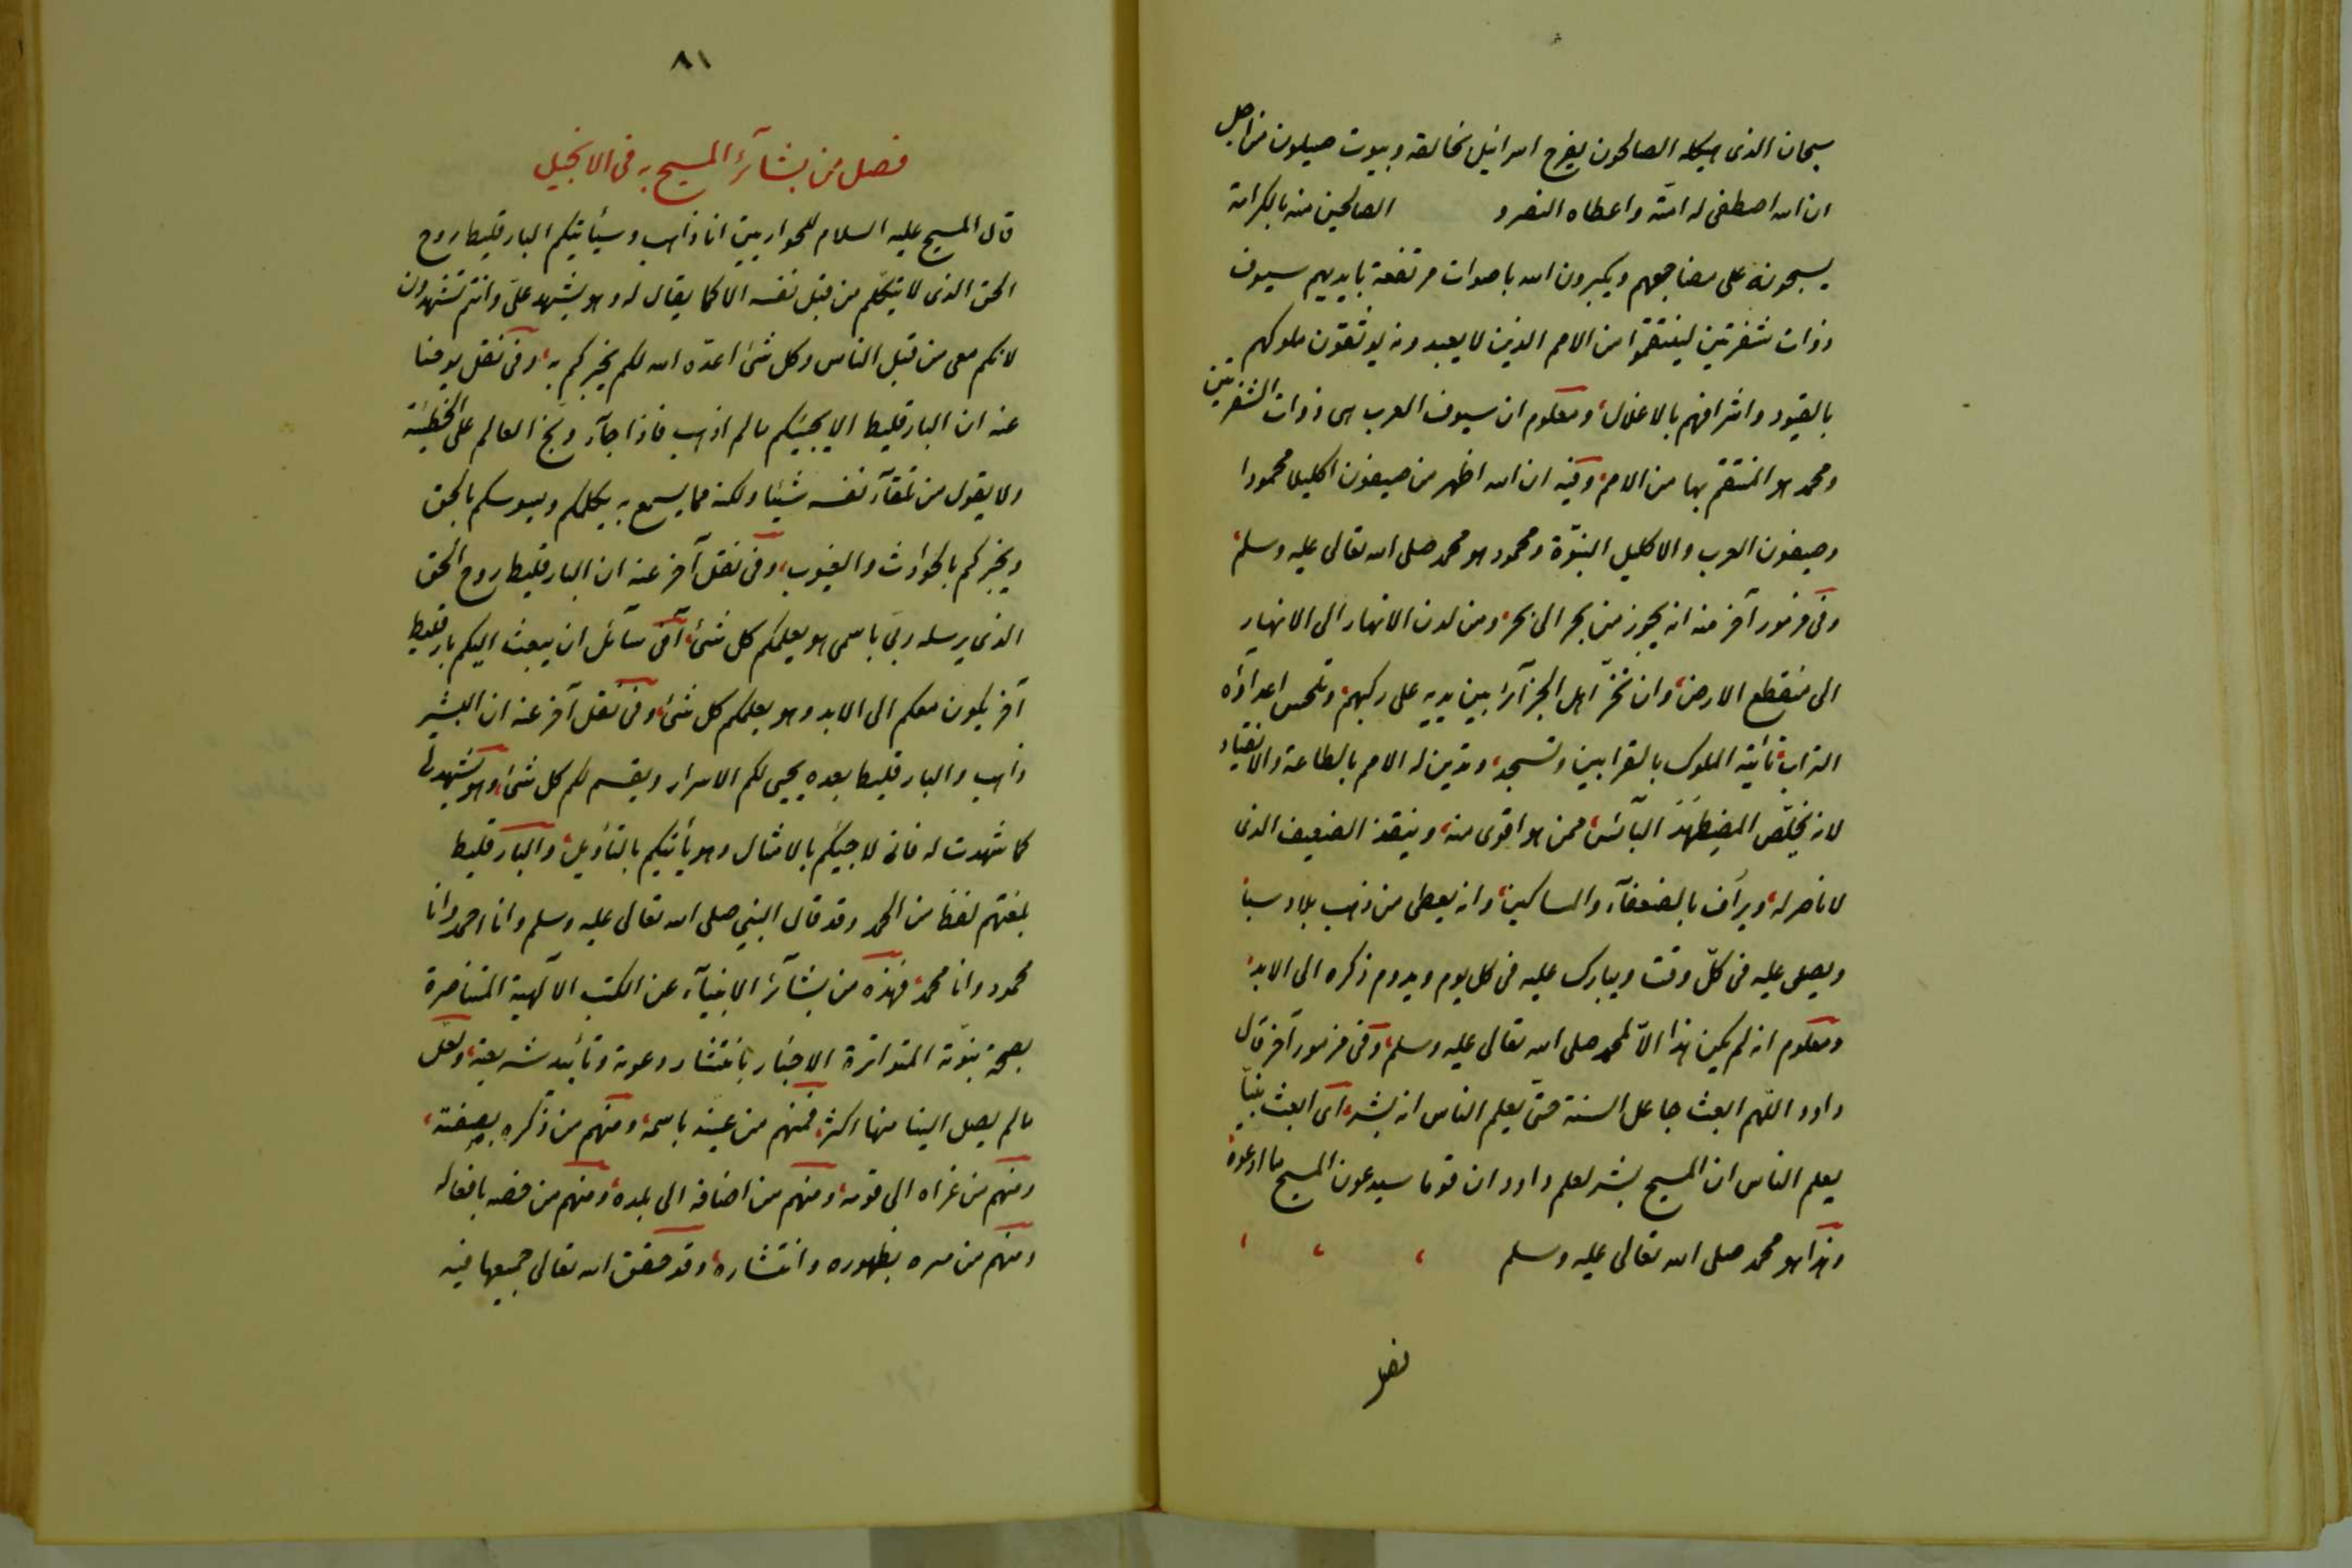 سبحان الذى هيكله الصالحون ليفرح اسرائيل بخالقه وبيوت صيهون من اجل
ان الله اصطفى له امّته واعطاه النصر و الصالحين منه بالكرامة
يسبحونه على مضاجعهم ويكبرون الله باصوات مرتفعة بايديهم سيوف
ذوات شفرتين لينتقموا من الامم الذين لا يعبدونه يوثقون ملوكهم
بالقيود واشرافهم بالاغلال، ومعلوم ان سيوف العرب هى ذوات الشفرتين
ومحمد هو المنتقم بها من الامم، وفيه ان الله اظهر من صيفون اكليلا محمودا
وصيفون العرب والاكليل النبوّة ومحمود هو محمد صلى الله تعالى عليه وسلم،
وفى مزمور آخر منه انه يجوز من بحر الى بحر، ومن لدن الانهار الى الانهار
الى منقطع الارض، وان تخرّ اهل الجزآئر بين يديه على ركبهم، وتلحس اعداؤه
التراب، تأتيه الملوك بالقرابين وتسجد، وتدين له الامم بالطاعة والانقياد
لانه يخلّص المضطهَدَ البآئس، ممن هو اقوى منه، وينقذ الضعيف الذى
لا ناصر له، ويرأف بالضعفآء والمساكين، وانه يعطى من ذهب بلاد سبا
ويصلى عليه فى كلّ وقت ويبارك عليه فى كل يوم ويدوم ذكره الى الابد،
ومعلوم انه لم يكن هذا الاّ لمحمد صلى الله تعالى عليه وسلم، وفى مزمور آخر قال
داود اللّهم ابعث جاعل السنة حتّى يعلم الناس انه بشر، اى ابعث نبيّا
يعلم الناس ان المسيح بشر لعلم داود ان قوما سيدعون المسيح ما ادعوه،
وهذا هو محمد صلى الله تعالى عليه وسلم ، ، ،
فصل
٨١
فصل من بشآئر المسيح به فى الانجيل
قال المسيح عليه السلام للحواريين انا ذاهب وسيأتيكم البارقليط روح
الحق الذى لا يتكلّم من قبل نفسه الا كما يقال له وهو يشهد علىّ وانتم تشهدون
لانكم معى من قبل الناس وكل شئ اعدّه الله لكم يخبركم به، وفى نقل يوحنا
عنه ان البارقليط لا يجيئكم مالم اذهب فاذا جآء وبّخ العالم على الخطيئة
ولا يقول من تلقآء نفسه شيئا ولكنه مما يسمع به يكلمكم ويسوسكم بالحق
ويخبركم بالحوادث والغيوب، وفى نقل آخر عنه ان البارقليط روح الحق
الذى يرسله ربى باسمى هو يعلمكم كل شئ، انى سآئل ان يبعث اليكم بارقليط
آخر يكون معكم الى الابد وهو يعلمكم كل شئ، وفى نقل آخر عنه ان البشير
ذاهب والبارقليط بعده يحيى لكم الاسرار ويفسر لكم كل شئ، وهو يشهد لى
كما شهدت له فانى لاجيئكم بالامثال وهو يأتيكم بالتأويل، والبارقليط
بلغتهم لفظ من الحمد وقد قال النبى صلى الله تعالى عليه وسلم وانا احمد وانا
محمود وانا محمد، فهذه من بشآئر الانبيآء عن الكتب الآلهية المتناصرة
بصحة نبوّته المتواترة الاخبار بانتشار دعوته وتأييد شريعته، ولعلّ
مالم يصل الينا منها اكثر، فمنهم من عيّنه باسمه، ومنهم من ذكره بصفته،
ومنهم من عزاه الى قومه، ومنهم من اضافه الى بلده، ومنهم من خصه بافعاله
ومنهم من ميزه بظهوره وانتشاره، وقد حقق الله تعالى جميعها فيه